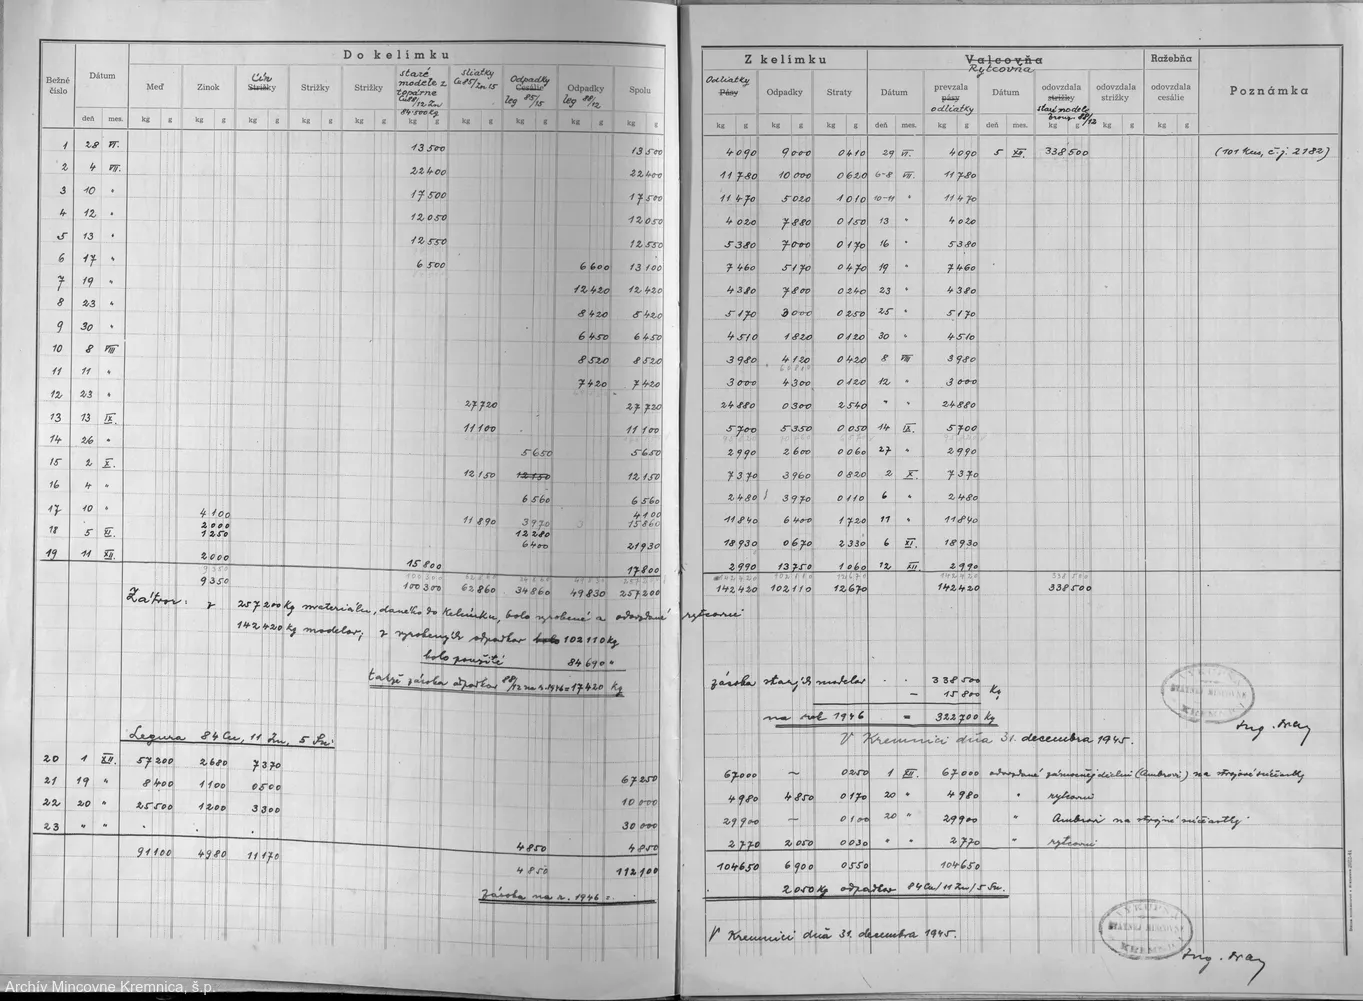 Do kelímku
Bežné číslo
Dátum
Meď
Zinok
Cín
Strižky
Strižky
Strižky
staré modele z topárne Cu 88/12 Zn 84.500 kg
sliatky Cu 85/Zn 15
Odpadky Cesálie leg 85/15
Odpadky leg 88/12
Spolu
deň mes. kg g kg g kg g kg g kg g kg g kg g kg g kg g kg g
1 28 VI. 13 500 13 500
2 4 VII. 22 400 22 400
3 10 " 17 500 17 500
4 12 " 12 050 12 050
5 13 " 12 550 12 550
6 17 " 6 500 6 600 13 100
7 19 " 12 420 12 420
8 23 " 8 420 8 420
9 30 " 6 450 6 450
10 8 VIII 8 520 8 520
11 11 " 7 420 7 420
12 23 " 27 720 27 720
13 13 IX. 11 100 11 100
14 26 " 5 650 5 650
15 2 X. 12 150 12 150 12 150
16 4 " 6 560 6 560
17 10 " 4 100 4 100
2 000 11 890 3 970 15 860
18 5 XI. 1 250 12 280
6 400 21 930
19 11 XII. 2 000 15 800 17 800
9 350 100 300 62 860 34 860 49 830 257 200
Záver: z 257 200 kg materiálu, daného do kelímku, bolo vyrobené a odovzdané rytcovni
142 420 kg modelov; z vyrobených odpadkov bolo 102 110 kg
bolo použité 84 690 "
takže zásoba odpadkov 88/12 na r. 1946 = 17 420 kg
Legura 84 Cu, 11 Zn, 5 Sn.
20 1 XII. 57 200 2 680 7 370 67 250
21 19 " 8 400 1 100 0 500 10 000
22 20 " 25 500 1 200 3 300 30 000
23 " " . . . 4 850 4 850
91 100 4 980 11 170 4 850 112 100
zásoba na r. 1946 =
Z kelímku
Valcovňa
Rytcovňa
Ražebňa
Poznámka
Odliatky Pásy
Odpadky
Straty
Dátum
prevzala pásy odliatky
Dátum
odovzdala strižky staré modele bronz 88/12
odovzdala strižky
odovzdala cesálie
kg g kg g kg g deň mes. kg g deň mes. kg g kg g kg g
4 090 9 000 0 410 29 VI. 4 090 5 XII. 338 500 (101 kus, č. j. 2182)
11 780 10 000 0 620 6-8 VII. 11 780
11 470 5 020 1 010 10-11 " 11 470
4 020 7 880 0 150 13 " 4 020
5 380 7 000 0 170 16 " 5 380
7 460 5 170 0 470 19 " 7 460
4 380 7 800 0 240 23 " 4 380
5 170 3 000 0 250 25 " 5 170
4 510 1 820 0 120 30 " 4 510
3 980 4 120 0 420 8 VIII 3 980
3 000 4 300 0 120 12 " 3 000
24 880 0 300 2 540 " " 24 880
5 700 5 350 0 050 14 IX. 5 700
2 990 2 600 0 060 27 " 2 990
7 370 3 960 0 820 2 X. 7 370
2 480 3 970 0 110 6 " 2 480
11 840 6 400 1 720 11 " 11 840
18 930 0 670 2 330 6 XI. 18 930
2 990 13 750 1 060 12 XII. 2 990
142 420 102 110 12 670 142 420 338 500
zásoba starých modelov . . 338 500
— 15 800 kg
na rok 1946 = 322 700 kg
V Kremnici dňa 31. decembra 1945.
67 000 — 0 250 1 XII. 67 000 odovzdané zámočnej dielni (Ambrovi) na strojové súčiastky
4 980 4 850 0 170 20 " 4 980 " rytcovni
29 900 — 0 100 20 " 29 900 " Ambrovi na strojné súčiastky
2 770 2 050 0 030 " " 2 770 " rytcovni
104 650 6 900 0 550 104 650
2 050 kg odpadkov 84 Cu/11 Zn/5 Sn.
V Kremnici dňa 31. decembra 1945.
ŠTÁTNEJ MINCOVNE
KREMNICA
ŠTÁTNEJ MINCOVNE
KREMNICA
Archív Mincovne Kremnica, š.p.